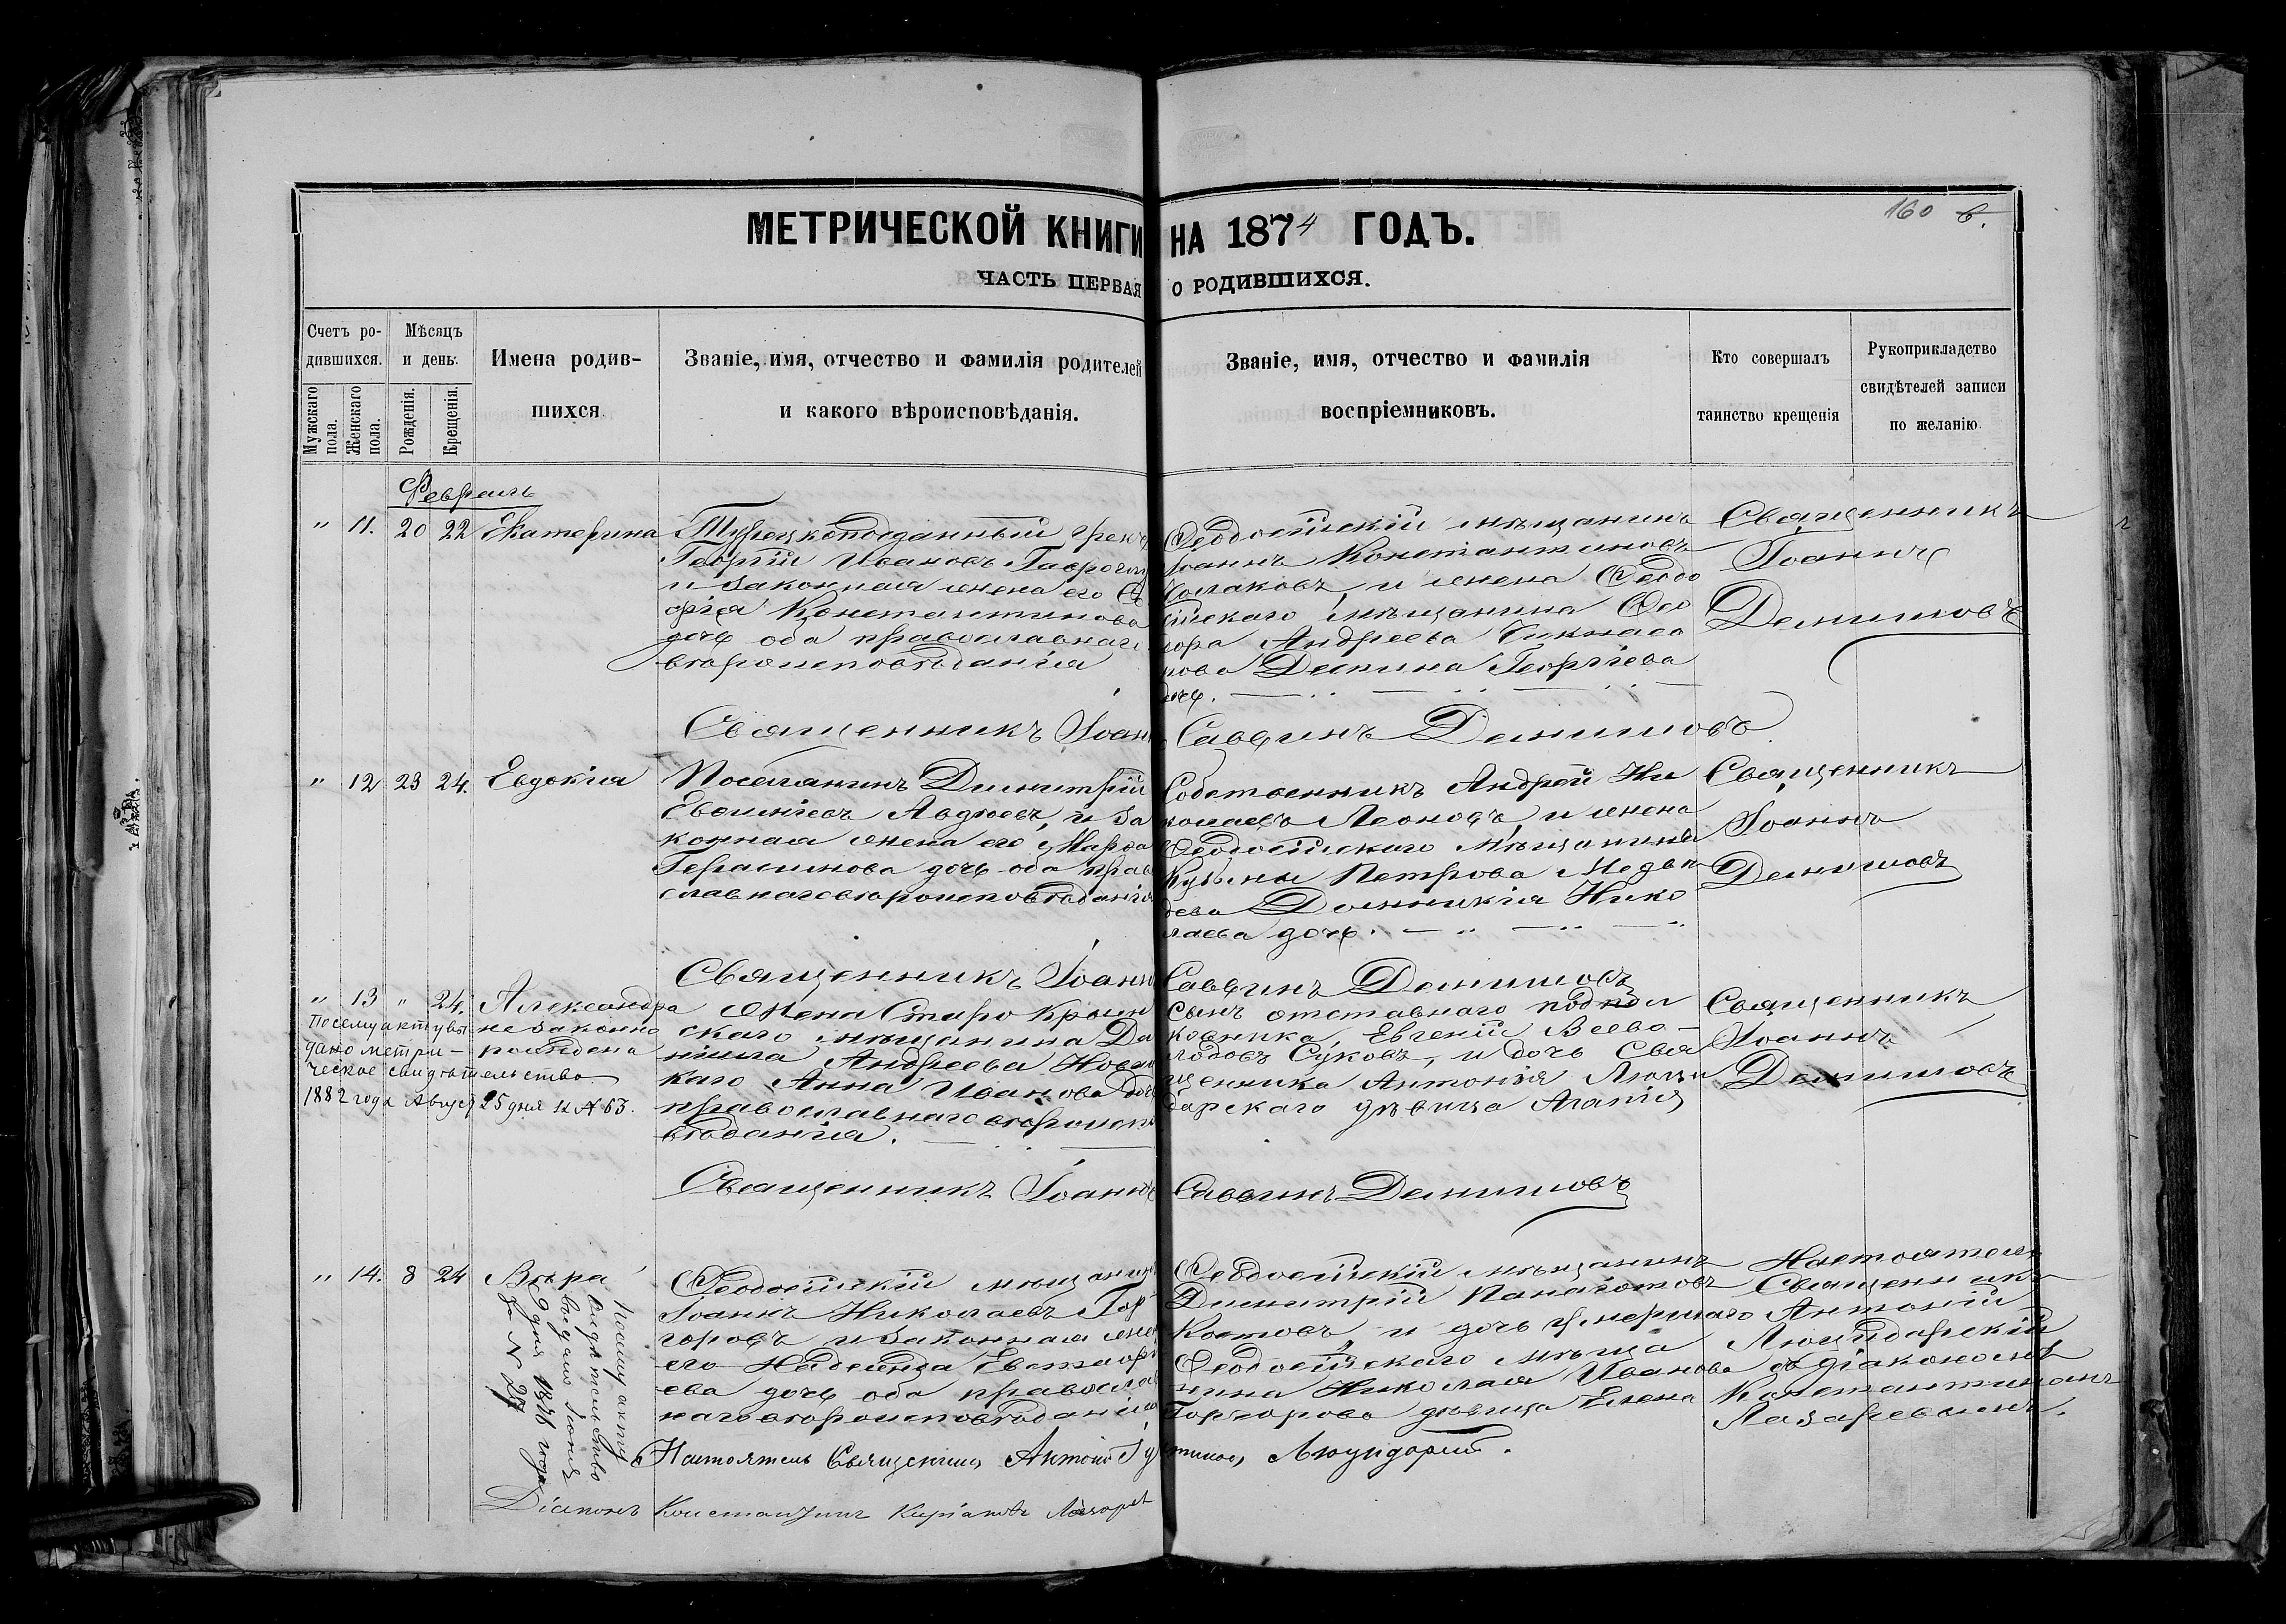 160 6.
МЕТРИЧЕСКОЙ КНИГИ НА 1874 ГОДЪ.
ЧАСТЬ ПЕРВАЯ О РОДИВШИХСЯ.
Счетъ ро-
дившихся.
Мужскаго пола.
Женскаго пола.
Мѣсяцъ
и день.
Рожденія.
Крещенія.
Имена родив-
шихся
Званіе, имя, отчество и фамилія родителей
и какого вѣроисповѣданія.
Званіе, имя, отчество и фамилія
воспріемниковъ.
Кто совершалъ
таинство крещенія
Рукоприкладство
свидѣтелей записи
по желанію
Февраль
" 11. 20 22 Екатерина
Турецкоподданный грекъ
Георгій Ивановъ
и законная жена его
Константинова
дочь оба православнаго
вѣроисповѣданія
Ѳеодосійскій мѣщанинъ
Іоаннъ Константиновъ
и жена Ѳеодо
сійскаго мѣщанина Ѳео
дора Андреева
Деспина Георгіева
дочь.
Священникъ
Іоаннъ
Демишовъ
Священникъ Іоаннъ Саввинъ Демишовъ
" 12 23 24. Евдокія
Поселянинъ Димитрій
Авдѣевъ, и за
конная жена его Марѳа
Герасимова дочь оба право
славнаго вѣроисповѣданія
Собственникъ Андрей Ни
колаевъ Леоновъ, и жена
Ѳеодосійскаго мѣщанина
Кузьмы Петрова Медвѣ
дева Домникія Нико
лаева дочь.
Священникъ
Іоаннъ
Демишовъ
Священникъ Іоаннъ Саввинъ Демишовъ
" 13 " 24. Александра
незаконно
рождена
По сему акту вы
дано метри-
ческое свидѣтельство
1882 года Август 25 дня за № 63.
Жена Старо Крым
скаго мѣщанина Да
ніила Андреева
Анна Иванова дочь
православнаго вѣроиспо
вѣданія.
Сынъ отставнаго подпол
ковника, Евгеній Всево-
лодовъ Суковъ, и дочь Свя
щенника Антонія Люци
дарскаго дѣвица Агапія
Священникъ
Іоаннъ
Демишовъ
Священникъ Іоаннъ Саввинъ Демишовъ
" 14. 8 24 Вѣра
По сему акту
свидѣтельство
выдано Іюня
9 дня 1876 года
за № 27
Ѳеодосійскій мѣщанинъ
Іоаннъ Николаевъ Гор
горовъ и законная жена
его Надежда
ева дочь оба православ
наго вѣроисповѣданія
Ѳеодосійскій мѣщанинъ
Димитрій Панаготовъ
Костовъ, и дочь умершаго
Ѳеодосійскаго мѣща
нина Николая Иванова
Горгорова дѣвица Елена
Настоятель
Священникъ
Антоній
Люцидарскій
съ діакономъ
Константиномъ
Лазаревымъ.
Настоятель Священникъ Антоній
Діаконъ Константинъ Киріаковъ Лазарев